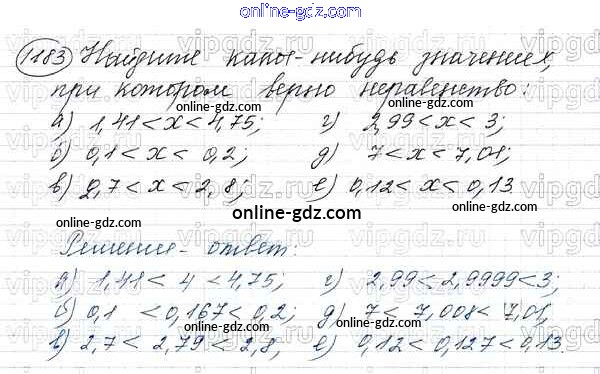 online-gdz.com
1183 Найдите какое-нибудь значение x,
при котором верно неравенство:
online-gdz.com
а) 1,41 < x < 4,75; г) 2,99 < x < 3;
б) 0,1 < x < 0,2; д) 7 < x < 7,01;
в) 2,7 < x < 2,8; е) 0,12 < x < 0,13
online-gdz.com online-gdz.com
online-gdz.com
Решение - ответ:
а) 1,41 < 4 < 4,75; г) 2,99 < 2,9999 < 3;
online-gdz.com
б) 0,1 < 0,167 < 0,2; д) 7 < 7,008 < 7,01;
online-gdz.com
в) 2,7 < 2,79 < 2,8; е) 0,12 < 0,127 < 0,13.
online-gdz.com